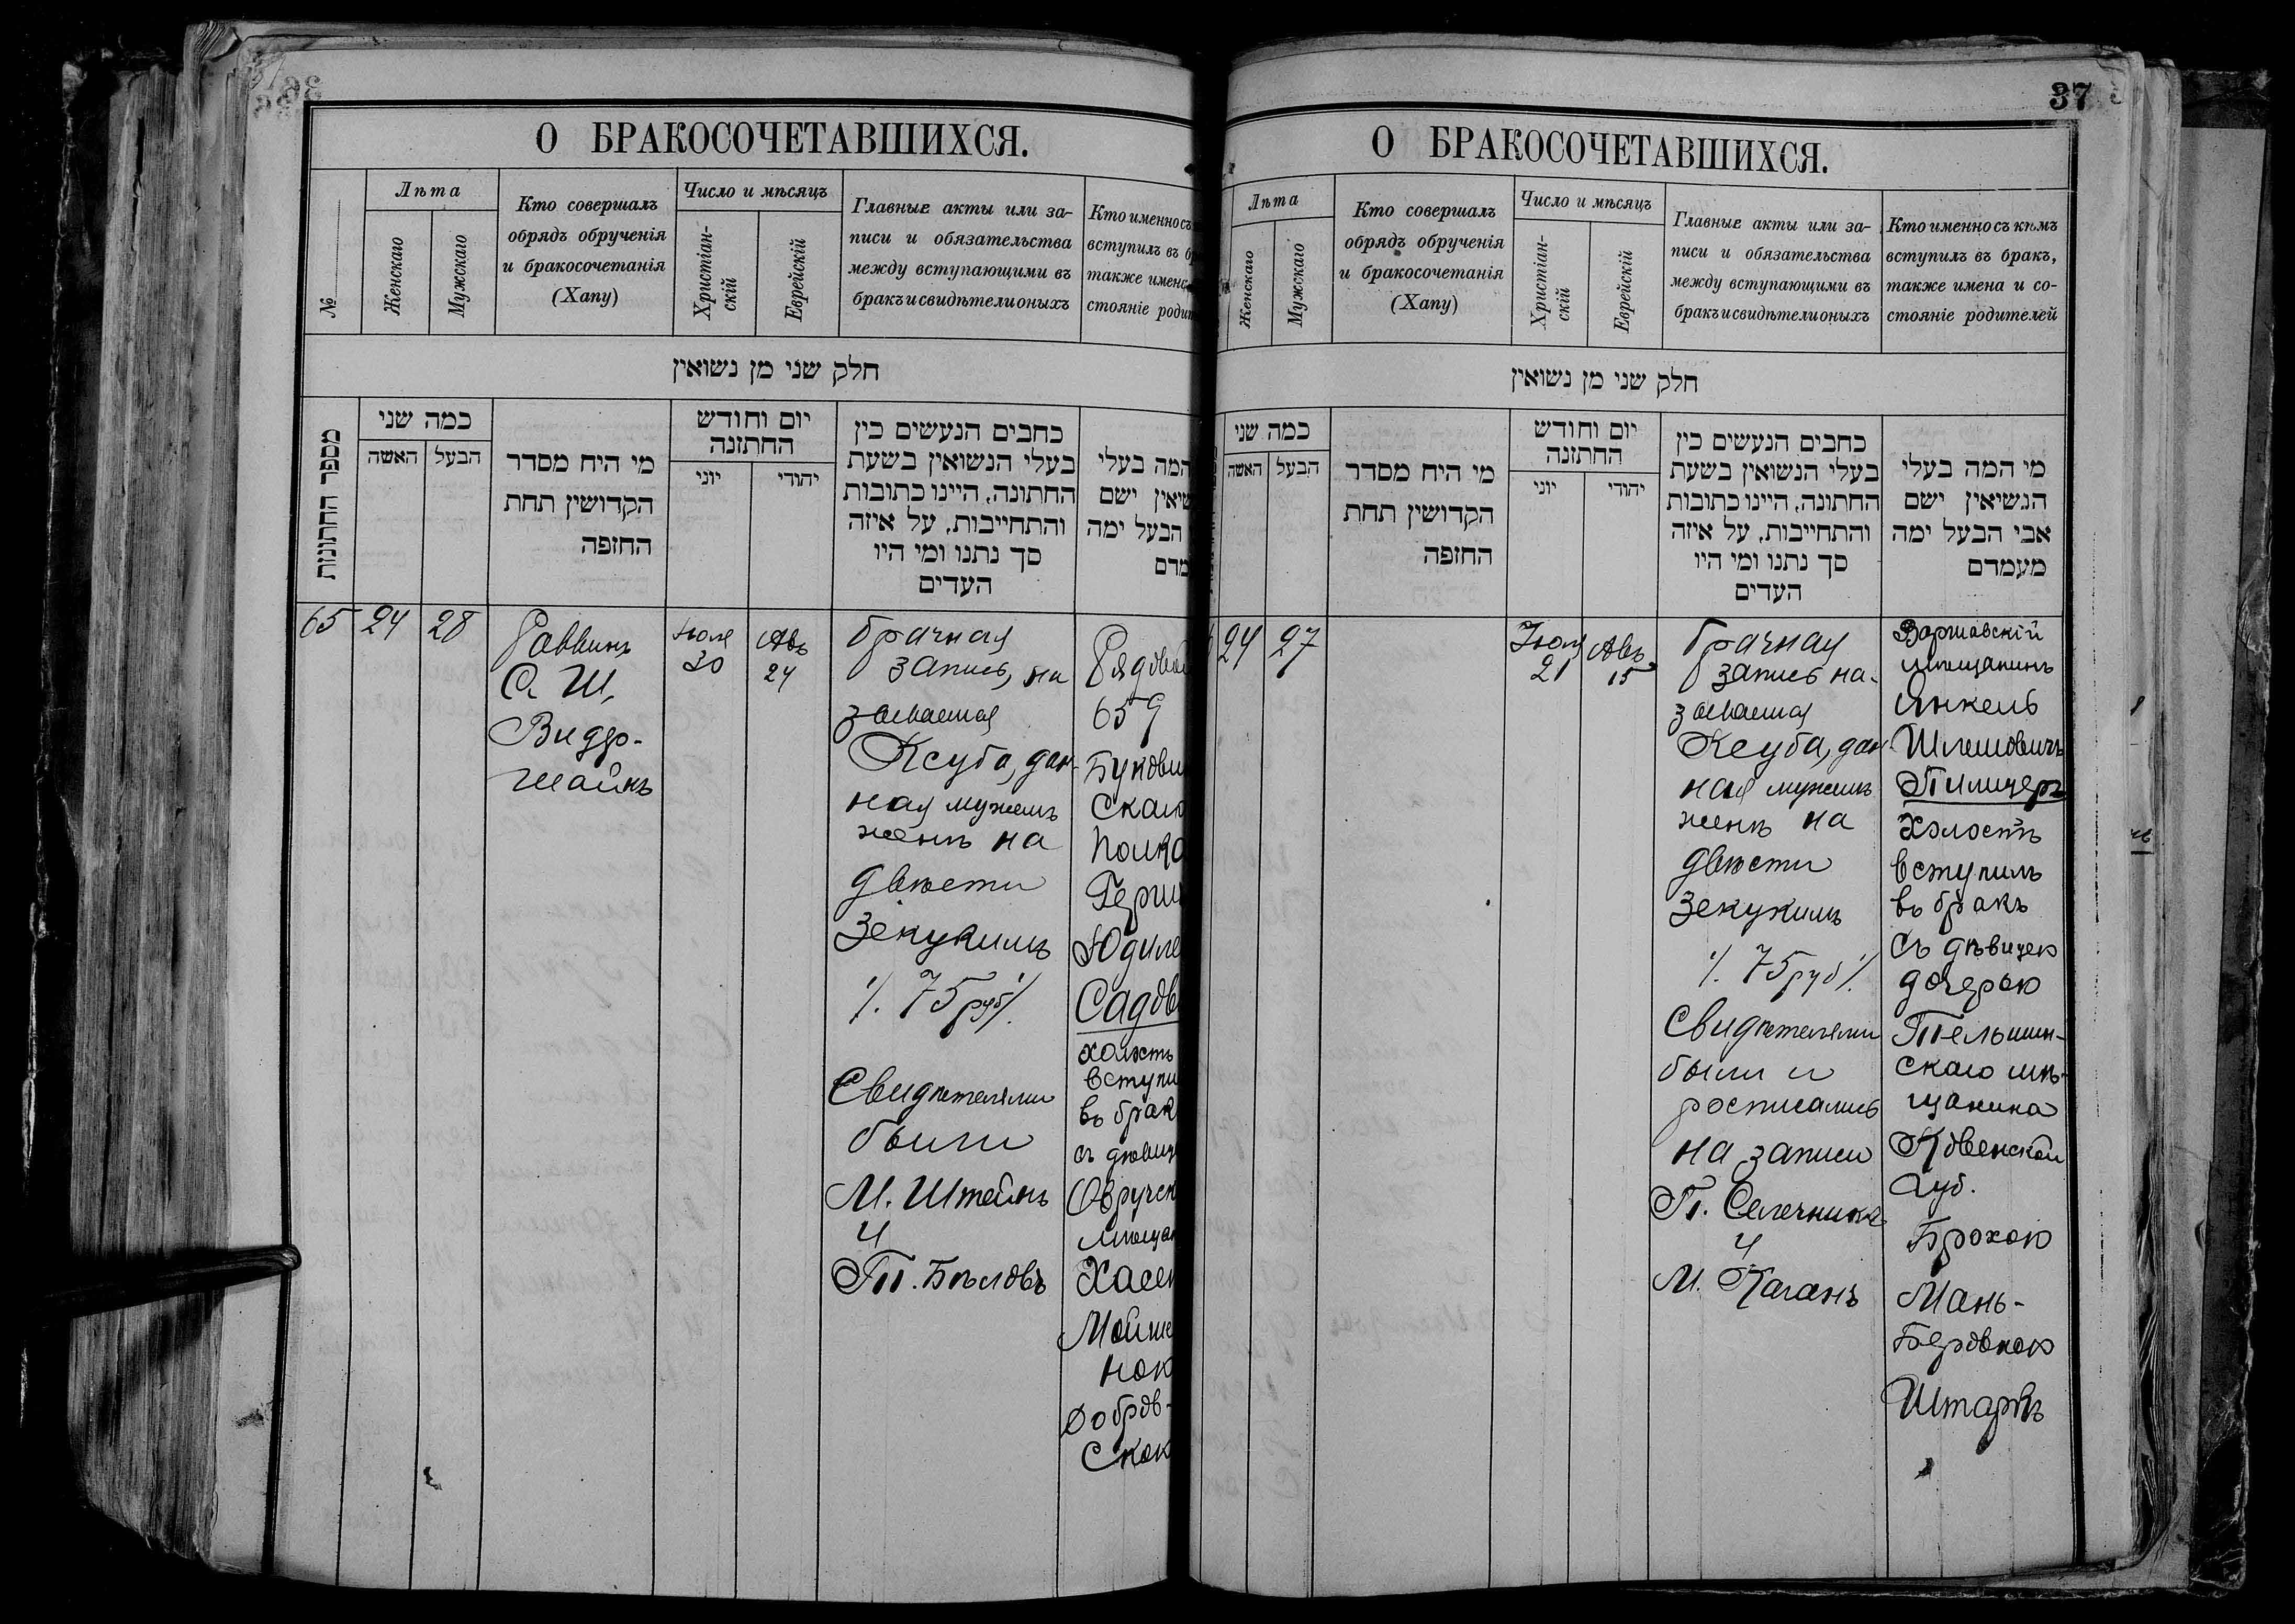 37
О БРАКОСОЧЕТАВШИХСЯ.
№
Лѣта
Женскаго
Мужскаго
Кто совершалъ
обрядъ обрученія
и бракосочетанія
(Хапу)
Число и мѣсяцъ
Христіан-
скій
Еврейскій
Главные акты или за-
писи и обязательства
между вступающими въ
бракъ и свидѣтели оныхъ
Кто именно съ
вступилъ въ б
также имена
стояніе роди
חלק שני מן נשואין
מספר החתונות
כמה שני
האשה
הבעל
מי היח מסדר
הקדושין תחת
החופה
יום וחודש
החתונה
יוני
יהודי
כחבים הנעשים כין
בעלי הנשואין בשעת
החתונה, היינו כתובות
והתחייבות, על איזה
סך נתנו ומי היו
העדים
המה בעלי
שיאין ישם
הבעל ימה
מדם
65
24
28
Раввинъ
С. Ш.
Видр-
шайнъ
Іюля
30
Авъ
24
брачная
запись, на
зываемая
Ксуба, дан-
ная мужемъ
женѣ на
двѣсти
Зекукимъ
/. 75 руб/.
Свидѣтелями
были
М. Штейнъ
и
Т. Бѣловъ
Рядовой
659
Букови
скаго
полка
Герш
Юдиле
Садов
холостъ
вступи
въ брак
съ дѣвиц
Овручск
мѣщан
Хасен
Мойше
ною
Добров-
скою
О БРАКОСОЧЕТАВШИХСЯ.
Лѣта
Женскаго
Мужскаго
Кто совершалъ
обрядъ обрученія
и бракосочетанія
(Хапу)
Число и мѣсяцъ
Христіан-
скій
Еврейскій
Главные акты или за-
писи и обязательства
между вступающими въ
бракъ и свидѣтели оныхъ
Кто именно съ кѣмъ
вступилъ въ бракъ,
также имена и со-
стояніе родителей
חלק שני מן נשואין
כמה שני
האשה
הבעל
מי היח מסדר
הקדושין תחת
החופה
יום וחודש
החתונה
יוני
יהודי
כחבים הנעשים כין
בעלי הנשואין בשעת
החתונה, היינו כתובות
והתחייבות, על איזה
סך נתנו ומי היו
העדים
מי המה בעלי
הנשיאין ישם
אבי הבעל ימה
מעמדם
24
27
Іюля
21
Авъ
15
брачная
запись на-
зываемая
Ксуба, дан-
ная мужемъ
женѣ на
двѣсти
Зекукимъ
/. 75 руб/.
Свидѣтелями
были и
росписались
на записи
Т. Селечникъ
и
М. Каганъ
Варшавскій
мѣщанинъ
Янкель
Шлемовичъ
Пилицеръ
холостъ
вступилъ
въ бракъ
съ дѣвицею
дочерью
Тельшин-
скаго мѣ-
щанина
Ковенской
губ.
Брохою
Мань-
Беровною
Штаръ